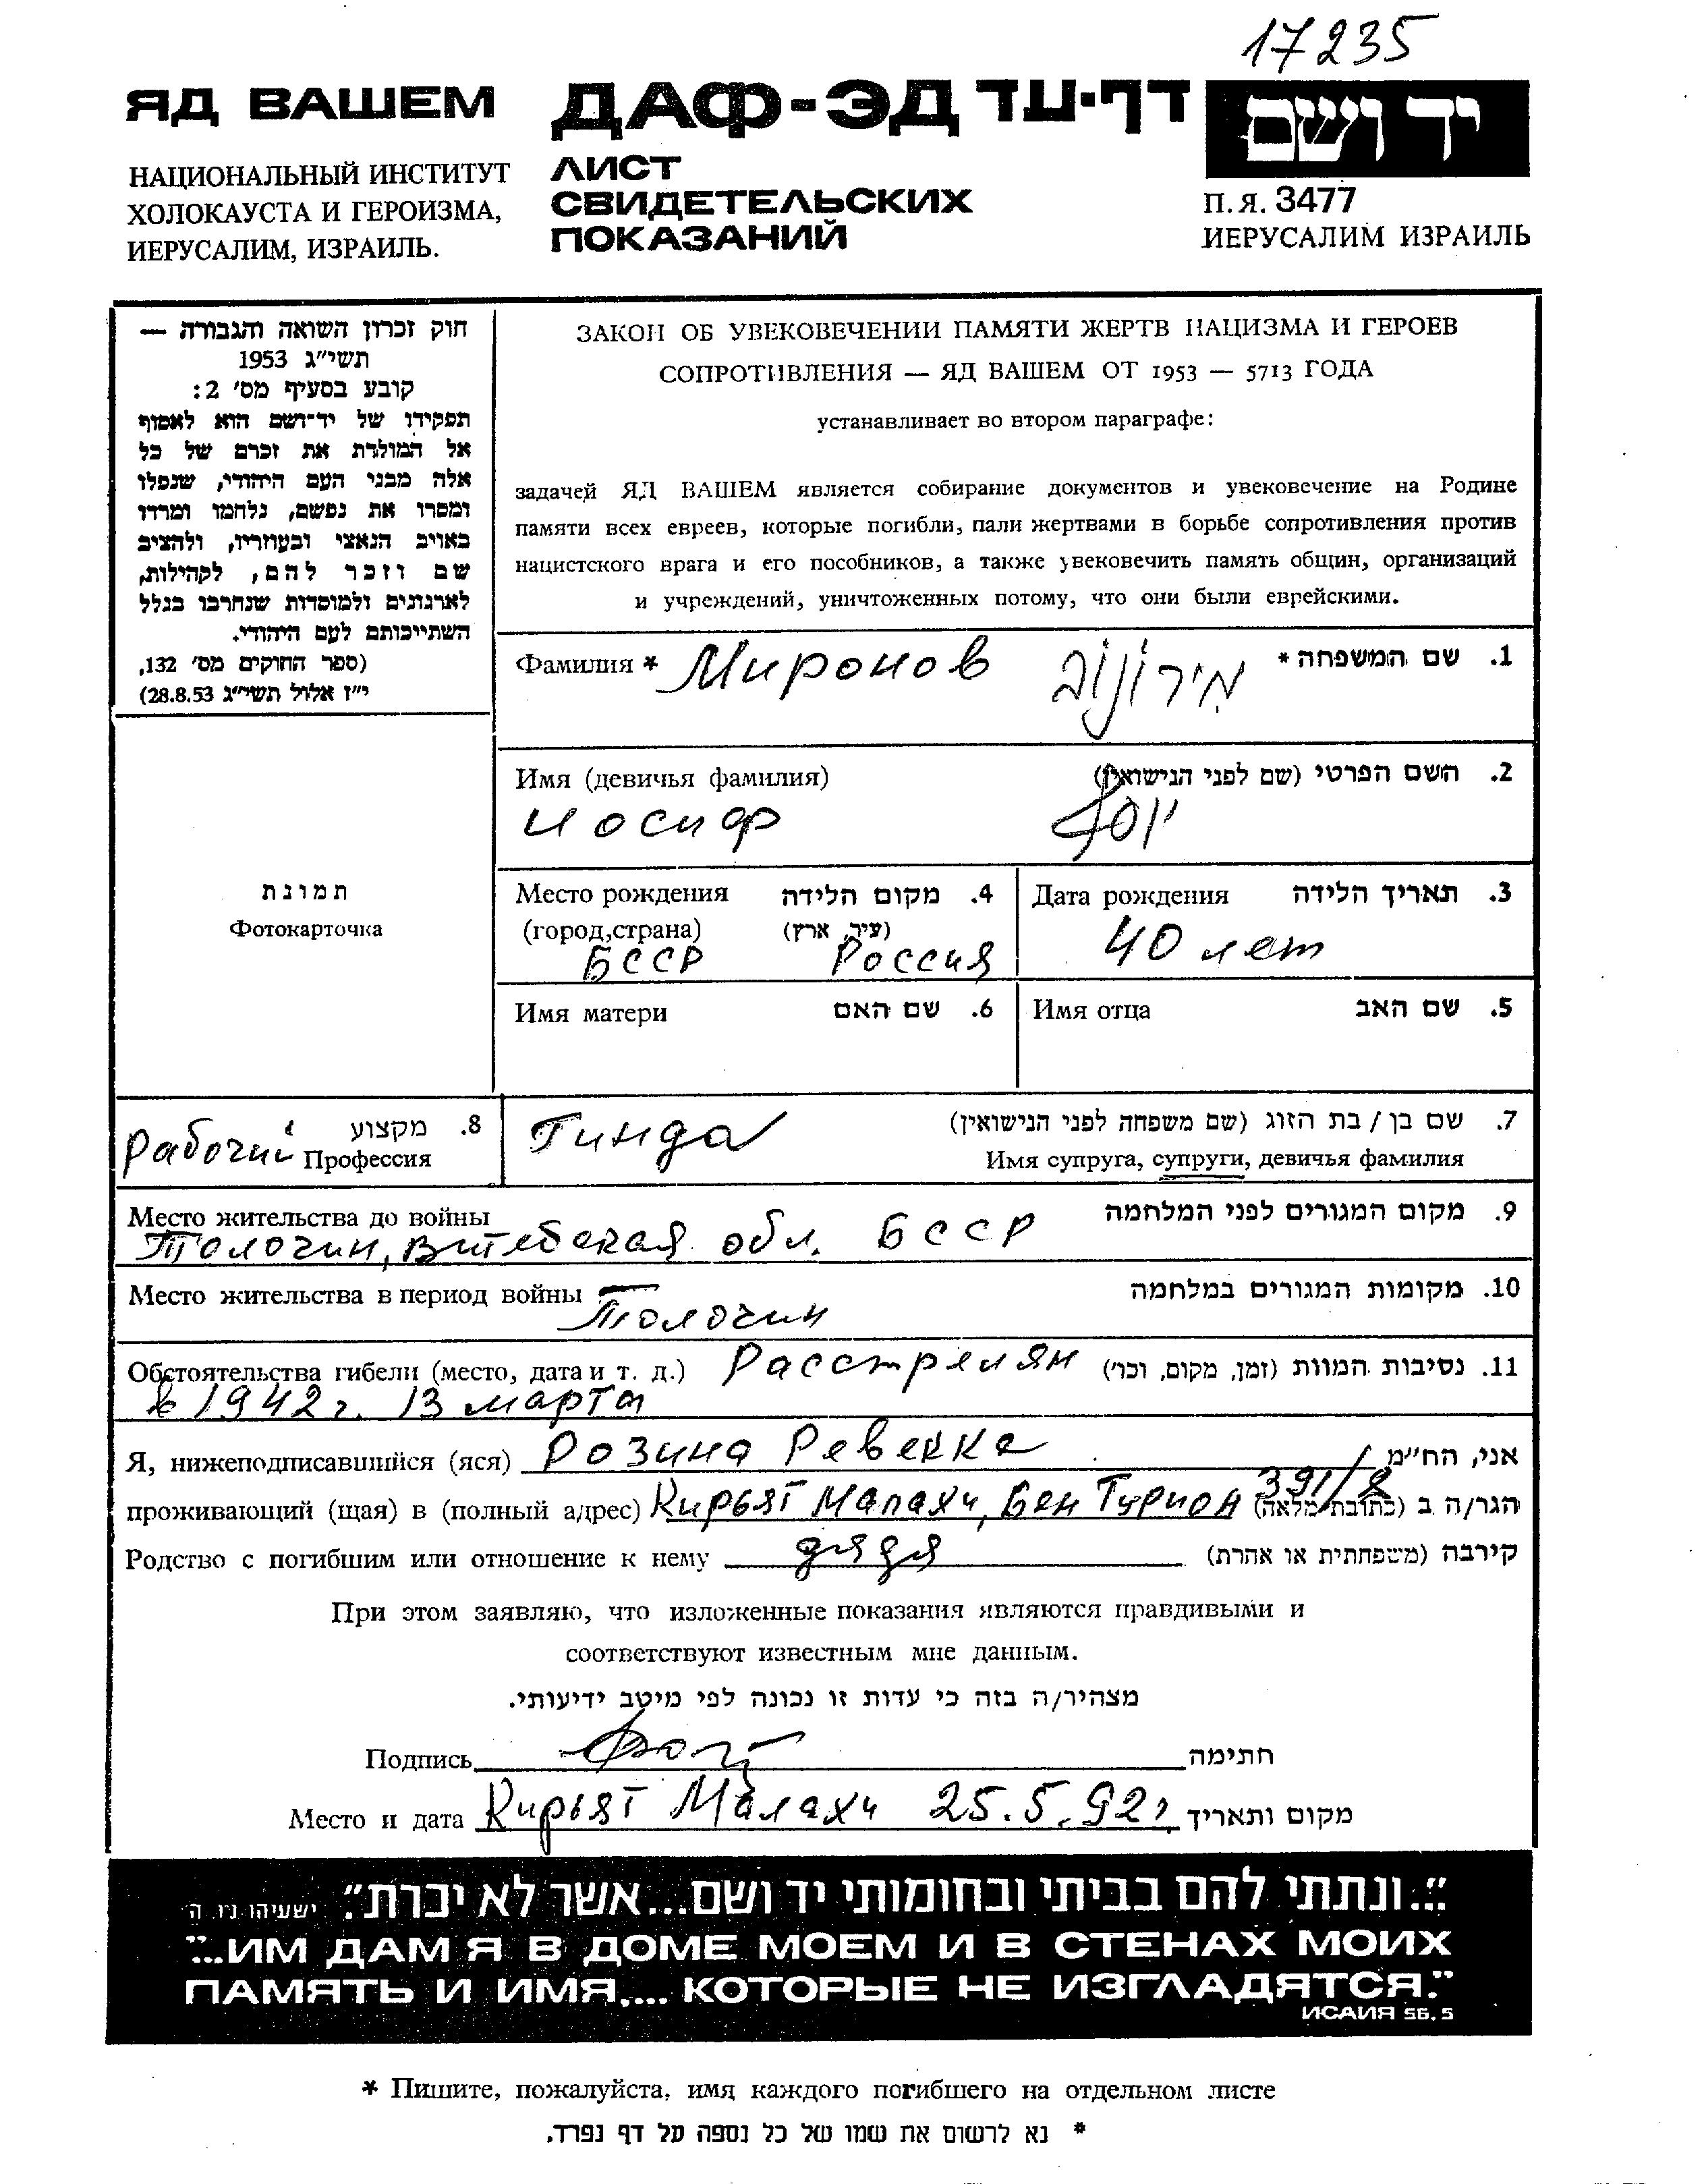 17235
ЯД ВАШЕМ
НАЦИОНАЛЬНЫЙ ИНСТИТУТ
ХОЛОКАУСТА И ГЕРОИЗМА,
ИЕРУСАЛИМ, ИЗРАИЛЬ.
ДАФ-ЭД דף-עד
ЛИСТ
СВИДЕТЕЛЬСКИХ
ПОКАЗАНИЙ
יד ושם
П.Я. 3477
ИЕРУСАЛИМ ИЗРАИЛЬ
חוק זכרון השואה והגבורה —
תשי״ג 1953
קובע בסעיף מס׳ 2:
תפקידו של יד-ושם הוא לאסוף
אל המולדת את זכרם של כל
אלה מבני העם היהודי, שנפלו
ומסרו את נפשם, נלחמו ומרדו
באויב הנאצי ובעוזריו, ולהציב
שם וזכר להם, לקהילות,
לארגונים ולמוסדות שנחרבו בגלל
השתייכותם לעם היהודי.
(ספר החוקים מס׳ 132,
י״ז אלול תשי״ג 28.8.53)
ЗАКОН ОБ УВЕКОВЕЧЕНИИ ПАМЯТИ ЖЕРТВ НАЦИЗМА И ГЕРОЕВ
СОПРОТИВЛЕНИЯ — ЯД ВАШЕМ ОТ 1953 — 5713 ГОДА
устанавливает во втором параграфе:
задачей ЯД ВАШЕМ является собирание документов и увековечение на Родине
памяти всех евреев, которые погибли, пали жертвами в борьбе сопротивления против
нацистского врага и его пособников, а также увековечить память общин, организаций
и учреждений, уничтоженных потому, что они были еврейскими.
Фамилия * Миронов מירונוב 1. שם המשפחה *
Имя (девичья фамилия) 2. השם הפרטי (שם לפני הנישואין)
Иосиф יוסף
תמונת
Фотокарточка
Место рождения 4. מקום הלידה
(город,страна) (עיר, ארץ)
БССР Россия
Дата рождения 3. תאריך הלידה
40 лет
Имя матери 6. שם האם
Имя отца 5. שם האב
8. מקצוע
Рабочий Профессия
Гинда 7. שם בן / בת הזוג (שם משפחה לפני הנישואין)
Имя супруга, супруги, девичья фамилия
Место жительства до войны 9. מקום המגורים לפני המלחמה
Толочин, Витебская обл. БССР
Место жительства в период войны 10. מקומות המגורים במלחמה
Толочин
Обстоятельства гибели (место, дата и т. д.) Расстрелян 11. נסיבות המוות (זמן, מקום, וכו׳)
в 1942 г. 13 марта
Я, нижеподписавшийся (яся) Розина Ревекка אני, הח״מ
проживающий (щая) в (полный адрес) Кирьят Малахи, Бен Гурион 391/2 הגר/ה ב (כתובת מלאה)
Родство с погибшим или отношение к нему дядя קירבה (משפחתית או אחרת)
При этом заявляю, что изложенные показания являются правдивыми и
соответствуют известным мне данным.
מצהיר/ה בזה כי עדות זו נכונה לפי מיטב ידיעותי.
Подпись חתימה
Место и дата Кирьят Малахи 25.5.92г. מקום ותאריך
"...ונתתי להם בביתי ובחומותי יד ושם...אשר לא יכרת". ישעיהו נ״ו ה׳
"...ИМ ДАМ Я В ДОМЕ МОЕМ И В СТЕНАХ МОИХ
ПАМЯТЬ И ИМЯ.... КОТОРЫЕ НЕ ИЗГЛАДЯТСЯ."
ИСАИЯ 56,5
* Пишите, пожалуйста, имя каждого погибшего на отдельном листе
* נא לרשום את שמו של כל נספה על דף נפרד.